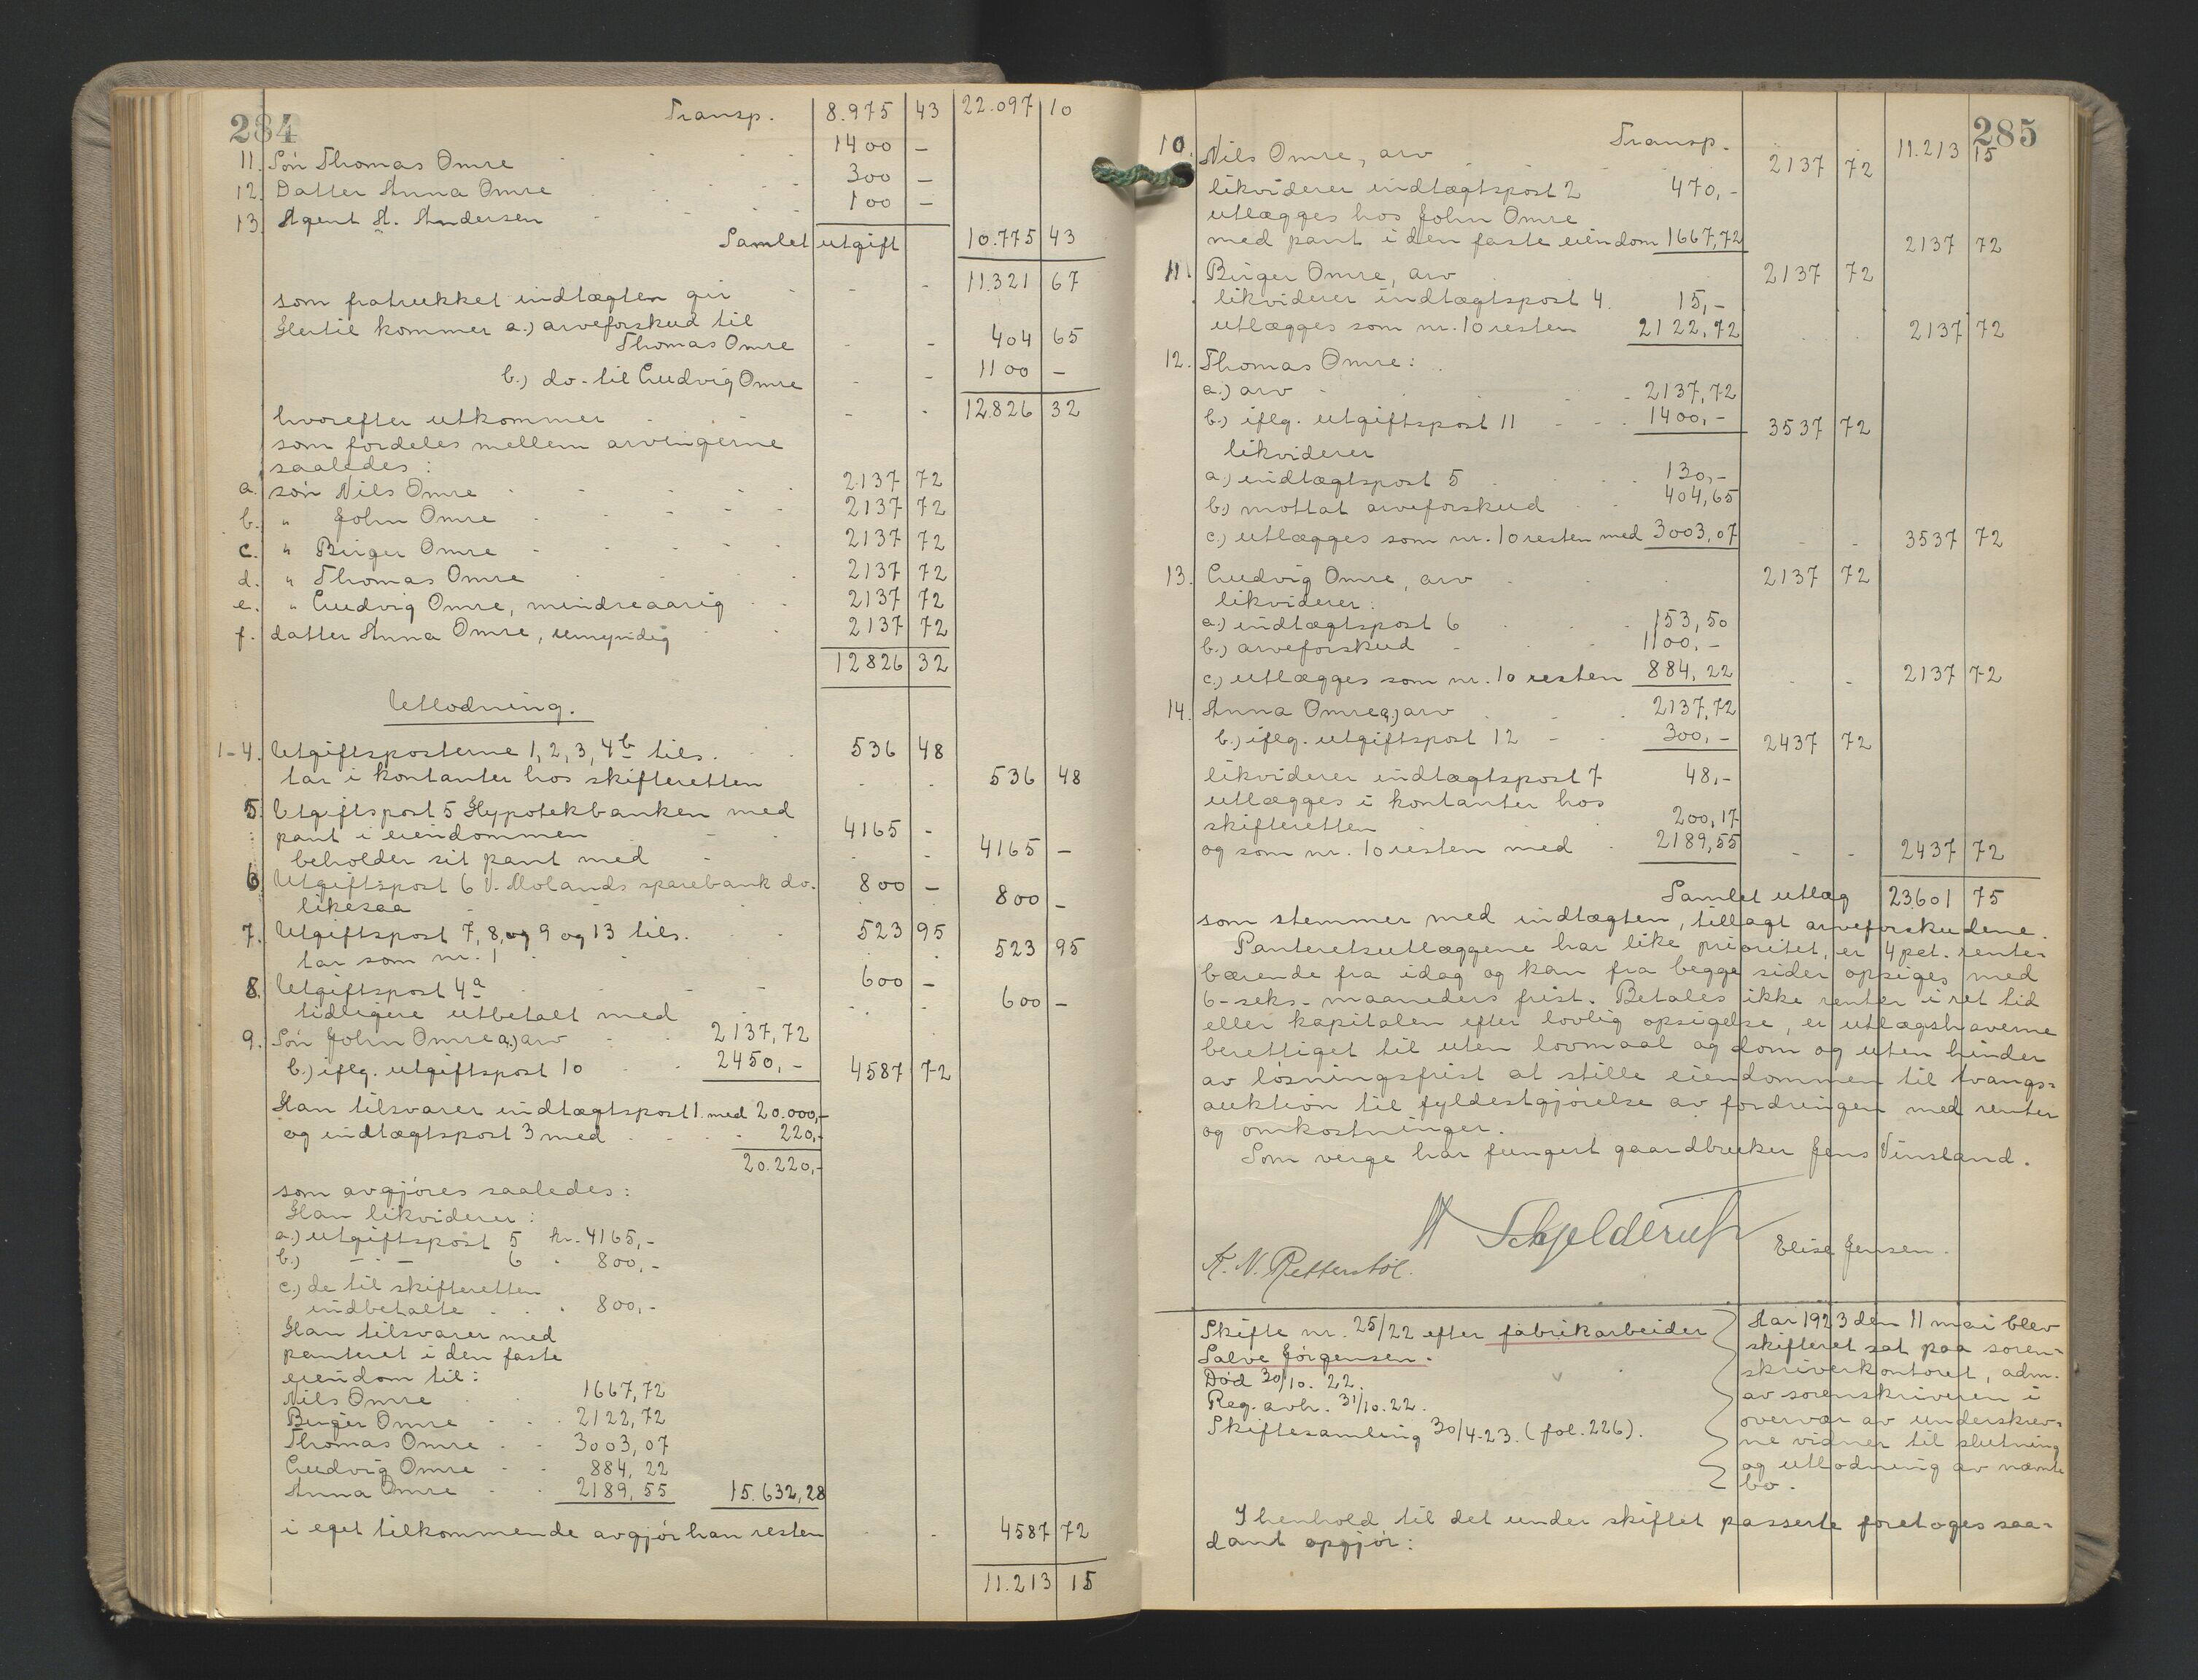 284
Transp. 8.975 43 22.097 10
11. Søn Thomas Omre 1400 –
12. Datter Anna Omre 300 –
13. Agent A. Andersen 100 –
Samlet utgift 10.775 43
som fratrukket indtægten gir 11.321 67
Hertil kommer a.) arveforskud til
Thomas Omre 404 65
b.) do - til Ludvig Omre 1100 –
hvorefter utkommer 12.826 32
som fordeles mellem arvingerne
saaledes:
a. søn Nils Omre 2137 72
b. " John Omre 2137 72
c. " Birger Omre 2137 72
d. " Thomas Omre 2137 72
e. " Ludvig Omre, mindreaarig 2137 72
f. datter Anna Omre, umyndig 2137 72
12826 32
Utlodning.
1-4. Utgiftsposterne 1, 2, 3, 4b tils. 536 48
tar i kontanter hos skifteretten 536 48
5. Utgiftspost 5 Hypotekbanken med
pant i eiendommen 4165 -
beholder sit pant med 4165 –
6. Utgiftspost 6 V. Molands sparebank do. 800 –
likesaa 800 –
7. Utgiftspost 7, 8, og 9 og 13 tils. 523 95
tar som nr. 1 523 95
8. Utgiftspost 4a 600 –
tidligere utbetalt med 600 –
9. Søn John Omre a.) arv 2137,72
b.) iflg. utgiftspost 10 2450,- 4587 72
Han tilsvarer indtægtspost 1. med 20.000,-
og indtægtspost 3 med 220,-
20.220,-
som avgjøres saaledes:
Han likviderer:
a.) utgiftspost 5 kr. 4165,-
b.) – " – 6 " 800,-
c.) de til skifteretten
indbetalte 800,-
Han tilsvarer med
panteret i den faste
eiendom til:
Nils Omre 1667,72
Birger Omre 2122,72
Thomas Omre 3003,07
Ludvig Omre 884,22
Anna Omre 2189,55 15.632,28
i eget tilkommende avgjør han resten 4587 72
11.213 15
285
Transp. 11.213 15
10. Nils Omre, arv 2137 72
likviderer indtægtspost 2 470,-
utlægges hos John Omre
med pant i den faste eiendom 1667,72 2137 72
11. Birger Omre, arv 2137 72
likviderer indtægtspost 4. 15,-
utlægges som nr. 10 resten 2122,72 2137 72
12. Thomas Omre:
a.) arv 2137,72
b.) iflg. utgiftspost 11 1400,- 3537 72
likviderer
a.) indtægtspost 5 130,-
b.) mottat arveforskud 404,65
c.) utlægges som nr. 10 resten med 3003,07 3537 72
13. Ludvig Omre, arv 2137 72
likviderer:
a.) indtægtspost 6 153,50
b.) arveforskud 1100,-
c.) utlægges som nr. 10 resten 884,22 2137 72
14. Anna Omre a.) arv 2137,72
b.) iflg. utgiftspost 12 300,- 2437 72
likviderer indtægtspost 7 48,-
utlægges i kontanter hos
skifteretten 200,17
og som nr. 10 resten med 2189,55 2437 72
Samlet utlæg 23601 75
som stemmer med indtægten, tillagt arveforskudene.
Panteretsutlæggene har like prioritet, er 4 pct. rente-
bærende fra idag og kan fra begge sider opsiges med
6-seks- maaneders frist. Betales ikke renter i ret tid
eller kapitalen efter lovlig opsigelse, er utlægshaverne
berettiget til uten lovmaal og dom og uten hinder
av løsningsfrist at stille eiendommen til tvangs=
auktion til fyldestgjørelse av fordringen med renter
og omkostninger.
Som verge har fungert gaardbruker Jens Vinsland.
A Schjelderup
K. N. Retterstøl. Elise Jensen.
Skifte nr. 25/22 efter fabrikarbeider
Salve Jørgensen.
Død 30/10. 22.
Reg. avh. 31/10. 22.
Skiftesamling 30/4-23. (fol. 226).
Aar 1923 den 11 mai blev
skifteret sat paa soren-
skriverkontoret, adm.
av sorenskriveren i
overvær av underskrev=
ne vidner til slutning
og utlodning av nævnte
bo.
I henhold til det under skiftet passerte foretoges saa=
dant opgjør: